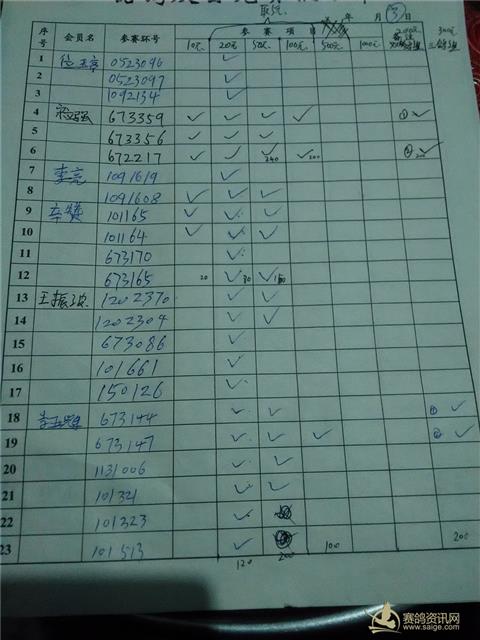 取消
年 月 ③ 日
序号 会员名 参赛环号 参赛项目
10元 20元 50元 100元 500元 1000元 300元
1 0523096 ✓
2 0523097 ✓
3 1092134 ✓
4 673359 ✓ ✓ ✓ ✓ ① ✓
5 673356 ✓ ✓ ✓
6 672217 ✓ ✓ ✓ 240 ✓ 200 ② ✓ 200
7 李亮 1091619 ✓
8 1091608 ✓ ✓ ✓
9 辛赞 101165 ✓ ✓ ✓
10 101164 ✓ ✓ ✓
11 673170 ✓
12 673165 20 ✓ 80 ✓ 150
13 1202370 ✓ ✓
14 1202304 ✓ ✓
15 673086 ✓
16 101661 ✓
17 150126 ✓
18 673144 ✓ ✓ ① ✓
19 673147 ✓ ✓ ✓ ② ✓
20 1131006 ✓ ✓
21 101321 ✓ ✓
22 101323 ✓
23 101513 ✓ 100 200
120 200
赛鸽资讯网
www.saige.com